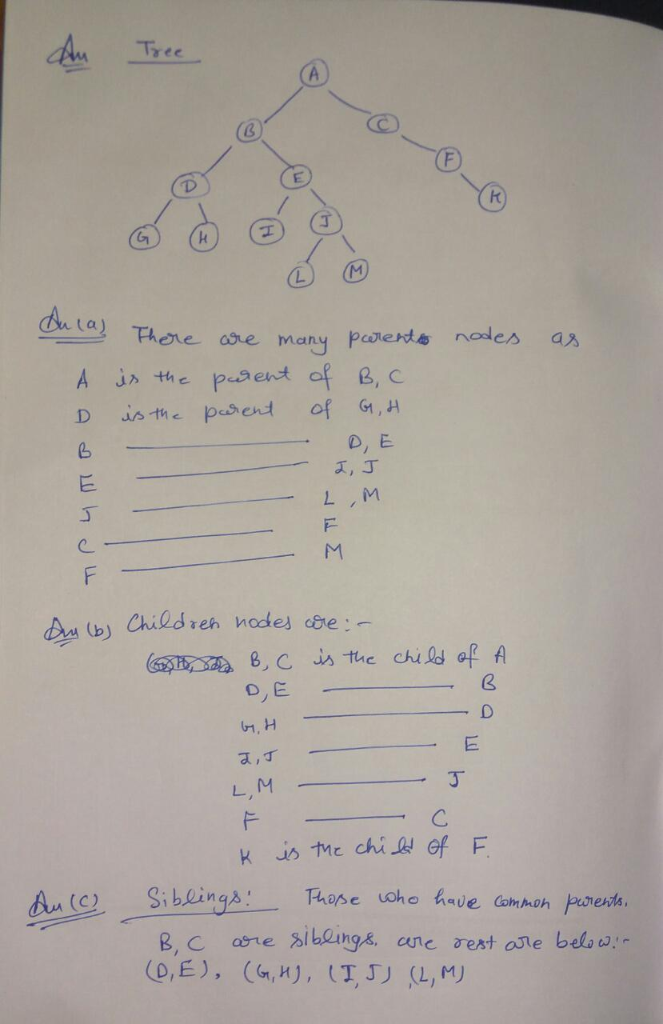 Ans Tree
A
B C
F
D E K
G H I J
L M
Ans (a) There are many parents nodes as
A is the parent of B, C
D is the parent of G, H
B D, E
E I, J
J L, M
C F
F M
Ans (b) Children nodes are:-
B, C is the child of A
D, E B
G, H D
I, J E
L, M J
F C
K is the child of F.
Ans (C) Siblings: Those who have common parents.
B, C are siblings. are rest are below:-
(D, E), (G, H), (I, J) (L, M)